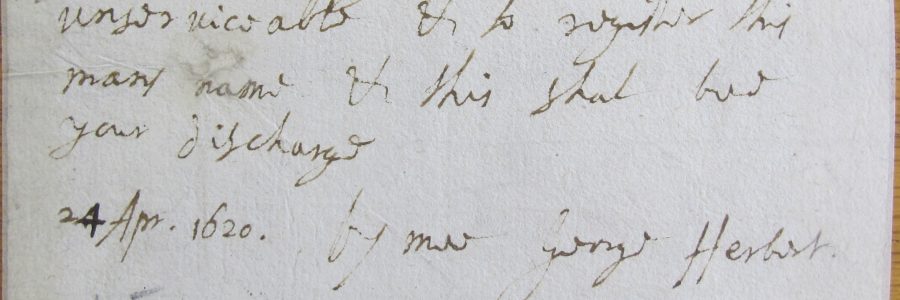 unserviceable & to register this
mans name & this shal bee
your discharge
24 Apr. 1620. by mee George Herbert.